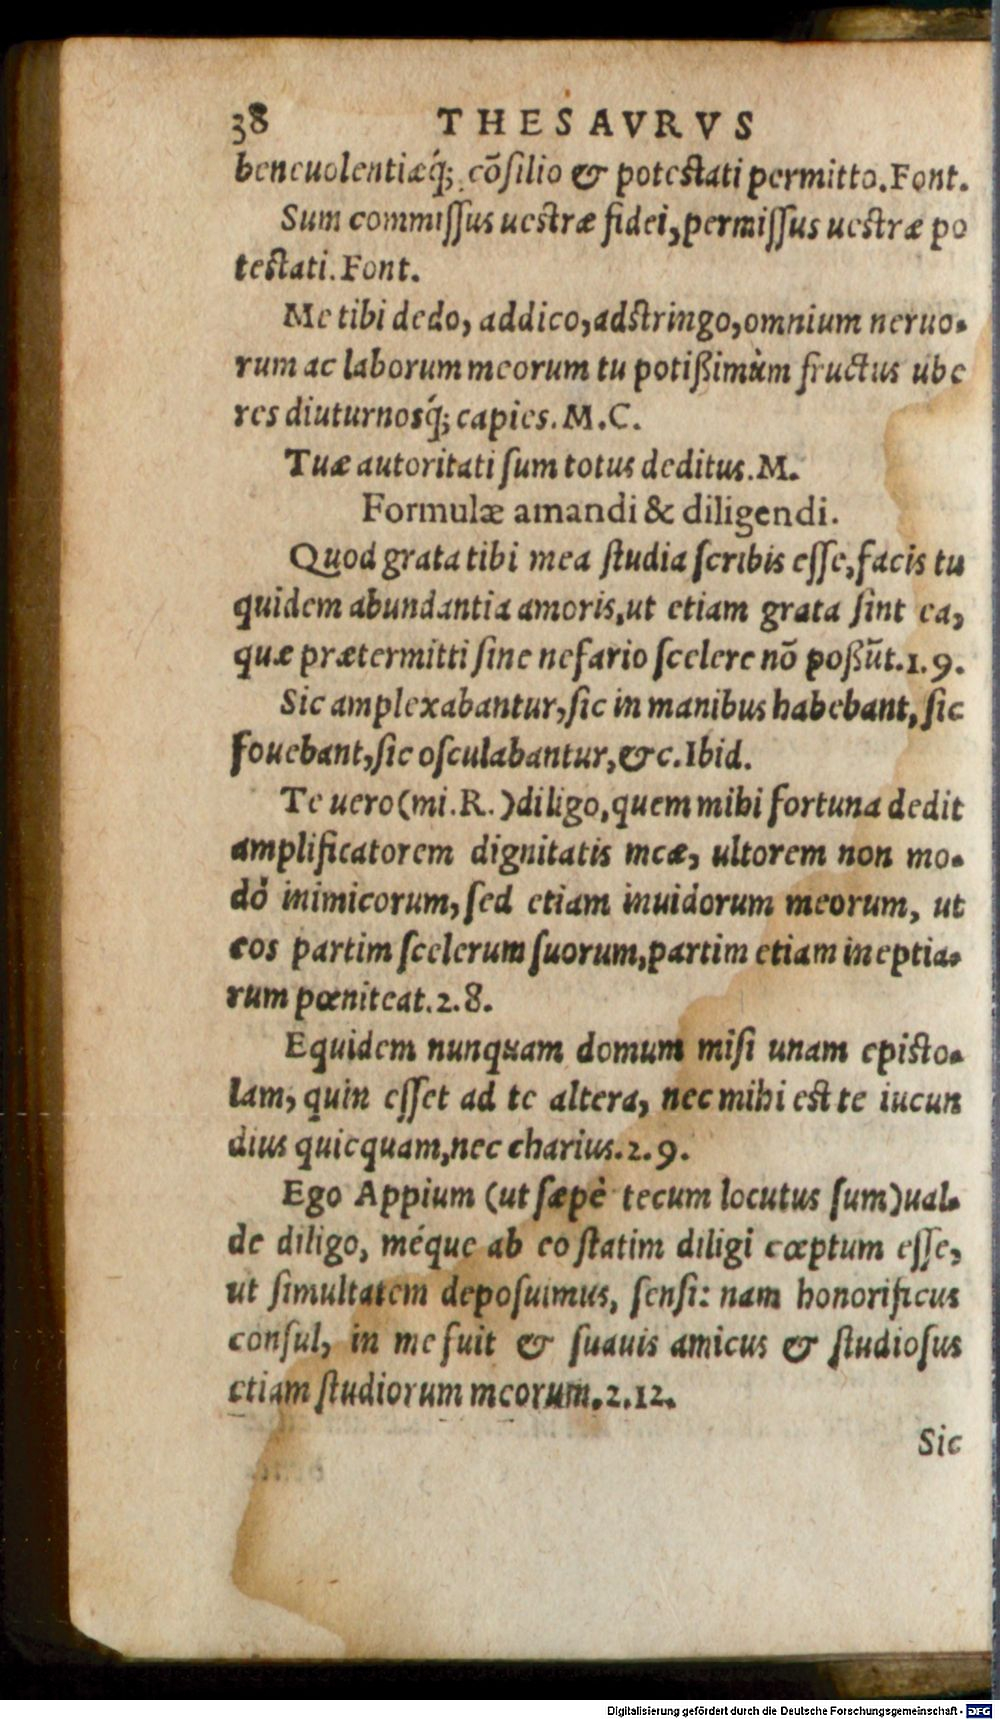 38 THESAVRVS
beneuolentiæq́;, cõſilio & poteſtati permitto. Font.
Sum commiſſus ueſtræ fidei, permiſſus ueſtræ po
teſtati. Font.
Me tibi dedo, addico, adſtringo, omnium neruo-
rum ac laborum meorum tu potißimùm fructus ube
res diuturnosq́; capies. M. C.
Tuæ autoritati ſum totus deditus. M.
Formulæ amandi & diligendi.
Quod grata tibi mea ſtudia ſcribis eſſe, facis tu
quidem abundantia amoris, ut etiam grata ſint ea,
quæ prætermitti ſine nefario ſcelere nõ poßũt. 1. 9.
Sic amplexabantur, ſic in manibus habebant, ſic
fouebant, ſic oſculabantur, &c. Ibid.
Te uero (mi. R.) diligo, quem mihi fortuna dedit
amplificatorem dignitatis meæ, ultorem non mo-
dò inimicorum, ſed etiam inuidorum meorum, ut
eos partim ſcelerum ſuorum, partim etiam ineptia-
rum pœniteat. 2. 8.
Equidem nunquam domum miſi unam epiſto-
lam, quin eſſet ad te altera, nec mihi eſt te iucun
dius quicquam, nec charius. 2. 9.
Ego Appium (ut ſæpè tecum locutus ſum) ual-
de diligo, méque ab eo ſtatim diligi cœptum eſſe,
ut ſimultatem depoſuimus, ſenſi: nam honorificus
conſul, in me fuit & ſuauis amicus & ſtudioſus
etiam ſtudiorum meorum. 2. 12.
Sic
Digitalisierung gefördert durch die Deutsche Forschungsgemeinschaft - DFG